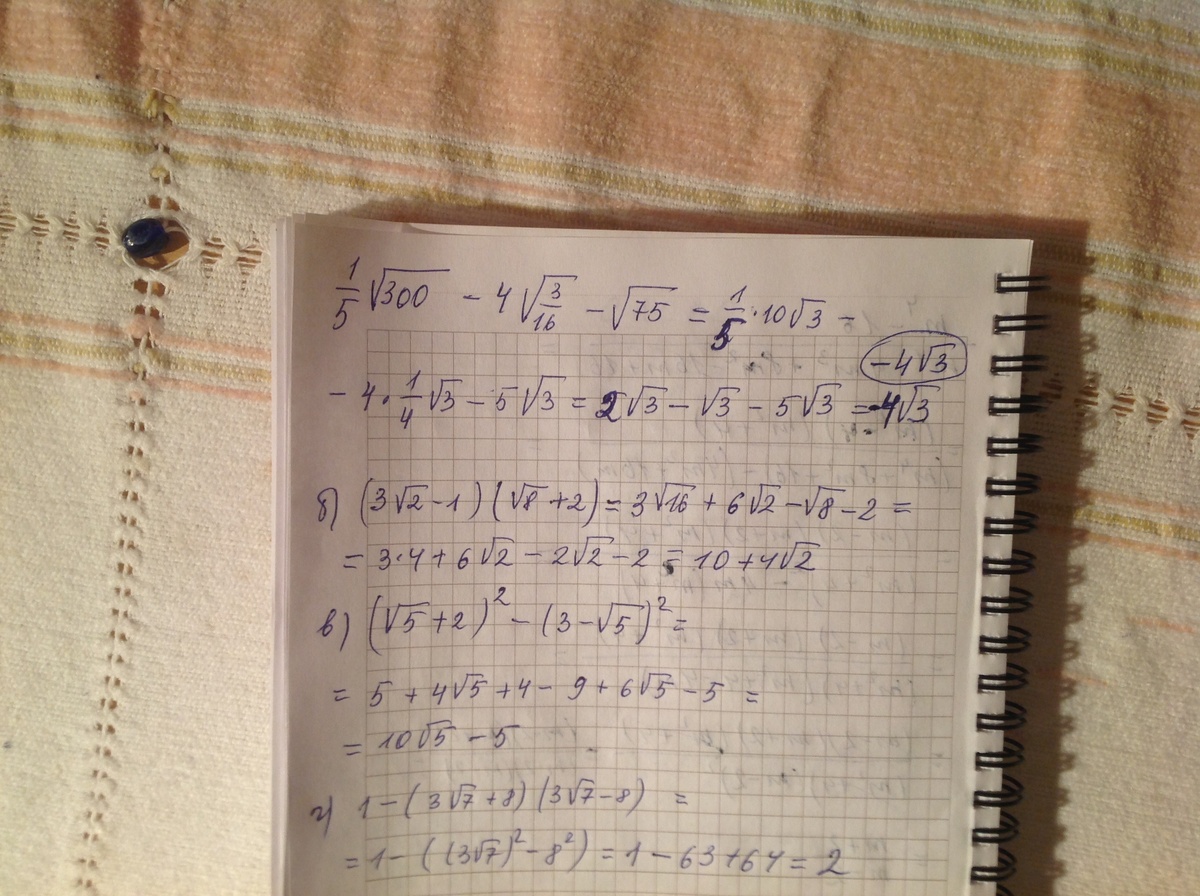 1/5 √300 - 4√(3/16) - √75 = 1/5 · 10√3 -
-4√3
- 4 · 1/4 √3 - 5√3 = 2√3 - √3 - 5√3 = -4√3
б) (3√2 - 1)(√8 + 2) = 3√16 + 6√2 - √8 - 2 =
= 3·4 + 6√2 - 2√2 - 2 = 10 + 4√2
в) (√5 + 2)² - (3 - √5)² =
= 5 + 4√5 + 4 - 9 + 6√5 - 5 =
= 10√5 - 5
г) 1 - (3√7 + 8)(3√7 - 8) =
= 1 - ((3√7)² - 8²) = 1 - 63 + 64 = 2